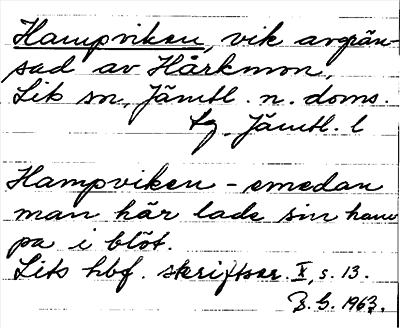 Hampviken, vik avgrän-
sad av Hårkmon,
Lits sn, Jämtl. n. doms.
tg. Jämtl. l
Hampviken - emedan
man här lade sin ham
pa i blöt.
Lits hbf. skriftser. X, s. 13.
B. G. 1963.